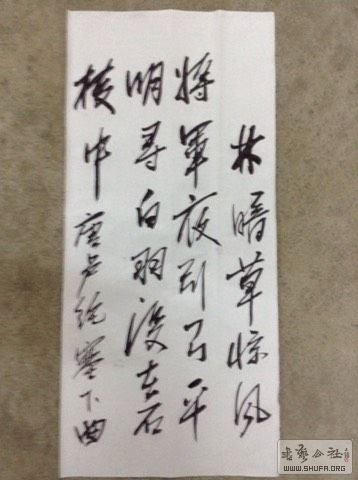 林暗草惊风
将军夜引弓平
明寻白羽没在石
棱中 唐卢纶塞下曲
书法公社
WWW.SHUFA.ORG